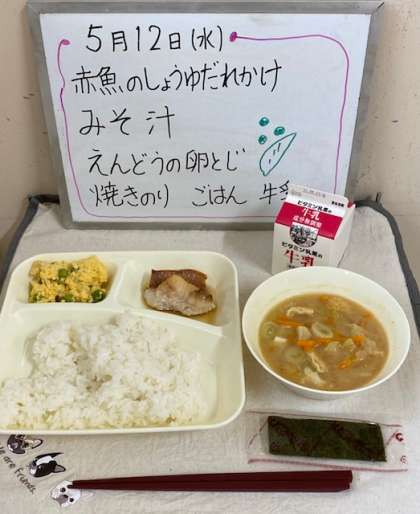 5月12日(水)
赤魚のしょうゆだれかけ
みそ汁
えんどうの卵とじ
焼きのり ごはん 牛乳
ビタミン乳業の
牛乳
成分無調整
ビタミン乳業の
牛乳